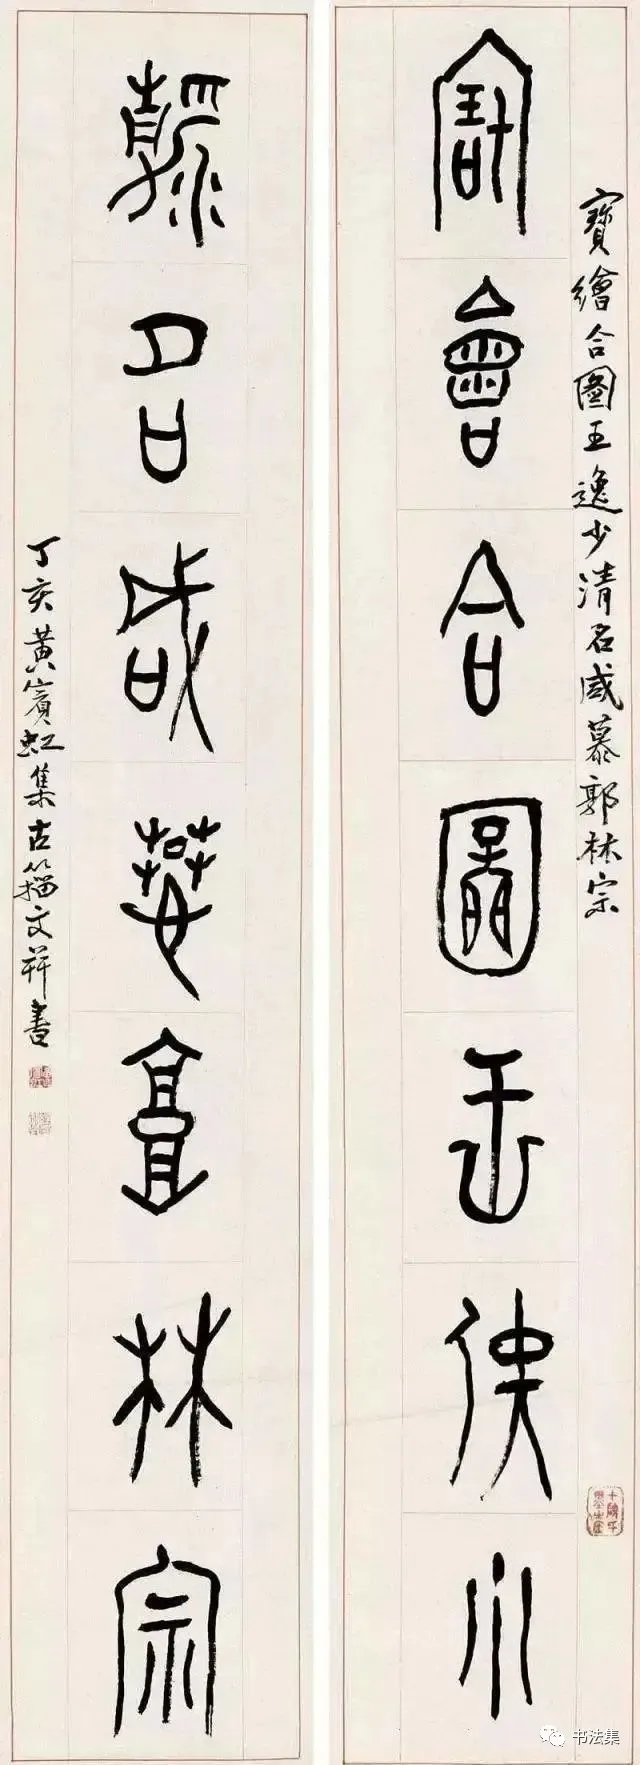 寶繪合圖王逸少清名咸慕郭林宗
寶會合圖王逸少
清名咸慕郭林宗
丁亥黃賓虹集古籀文并書
书法集